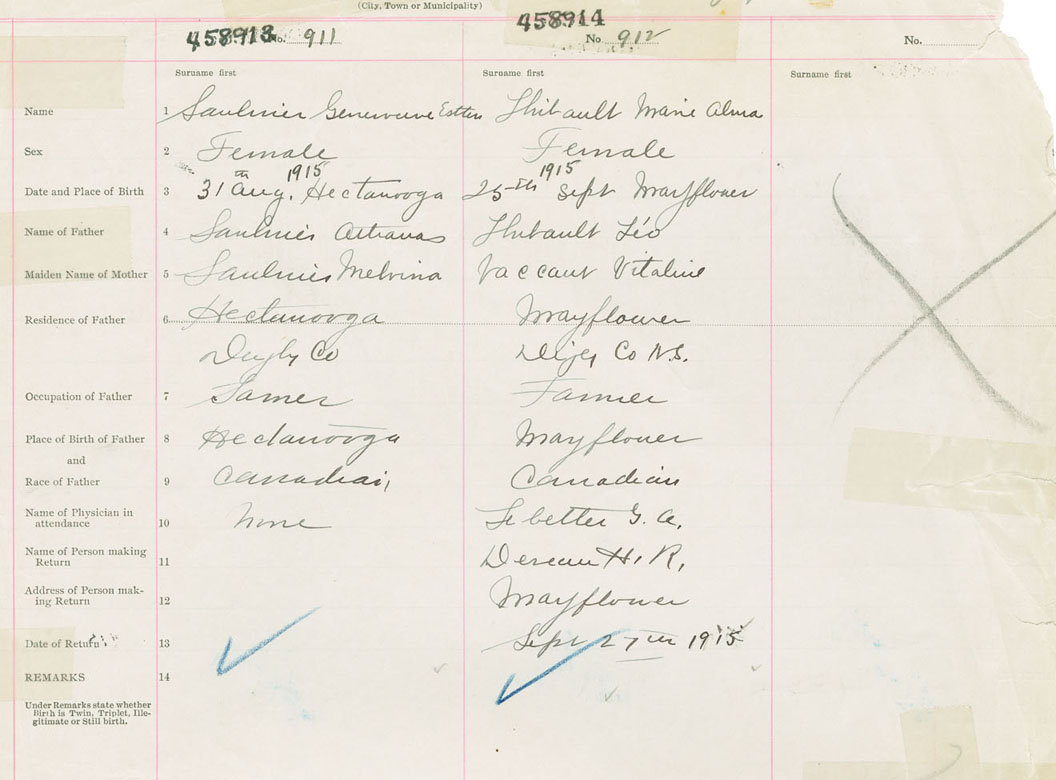 (City, Town or Municipality)
458913 No. 911
458914 No 912
No.
Suruame first
Surname first
Surname first
Name 1 Saulnier Genevieve Esther Thibault Marie Alma
Sex 2 Female Female
1915 1915
Date and Place of Birth 3 31th Aug. Hectanooga 25th Sept Mayflower
Name of Father 4 Saulnier Thibault Léo
Maiden Name of Mother 5 Saulnier Melvina Vaccaut Vitaline
Residence of Father 6 Hectanooga Mayflower
Digby Co Digby Co N.S.
Occupation of Father 7 Farmer Farmer
Place of Birth of Father 8 Hectanooga Mayflower
and
Race of Father 9 Canadian Canadian
Name of Physician in
attendance 10 None G. A.
Name of Person making
Return 11 H. R.
Address of Person mak-
ing Return 12 Mayflower
Date of Return 13 Sept 27th 1915
REMARKS 14
Under Remarks state whether
Birth is Twin, Triplet, Ille-
gitimate or Still birth.